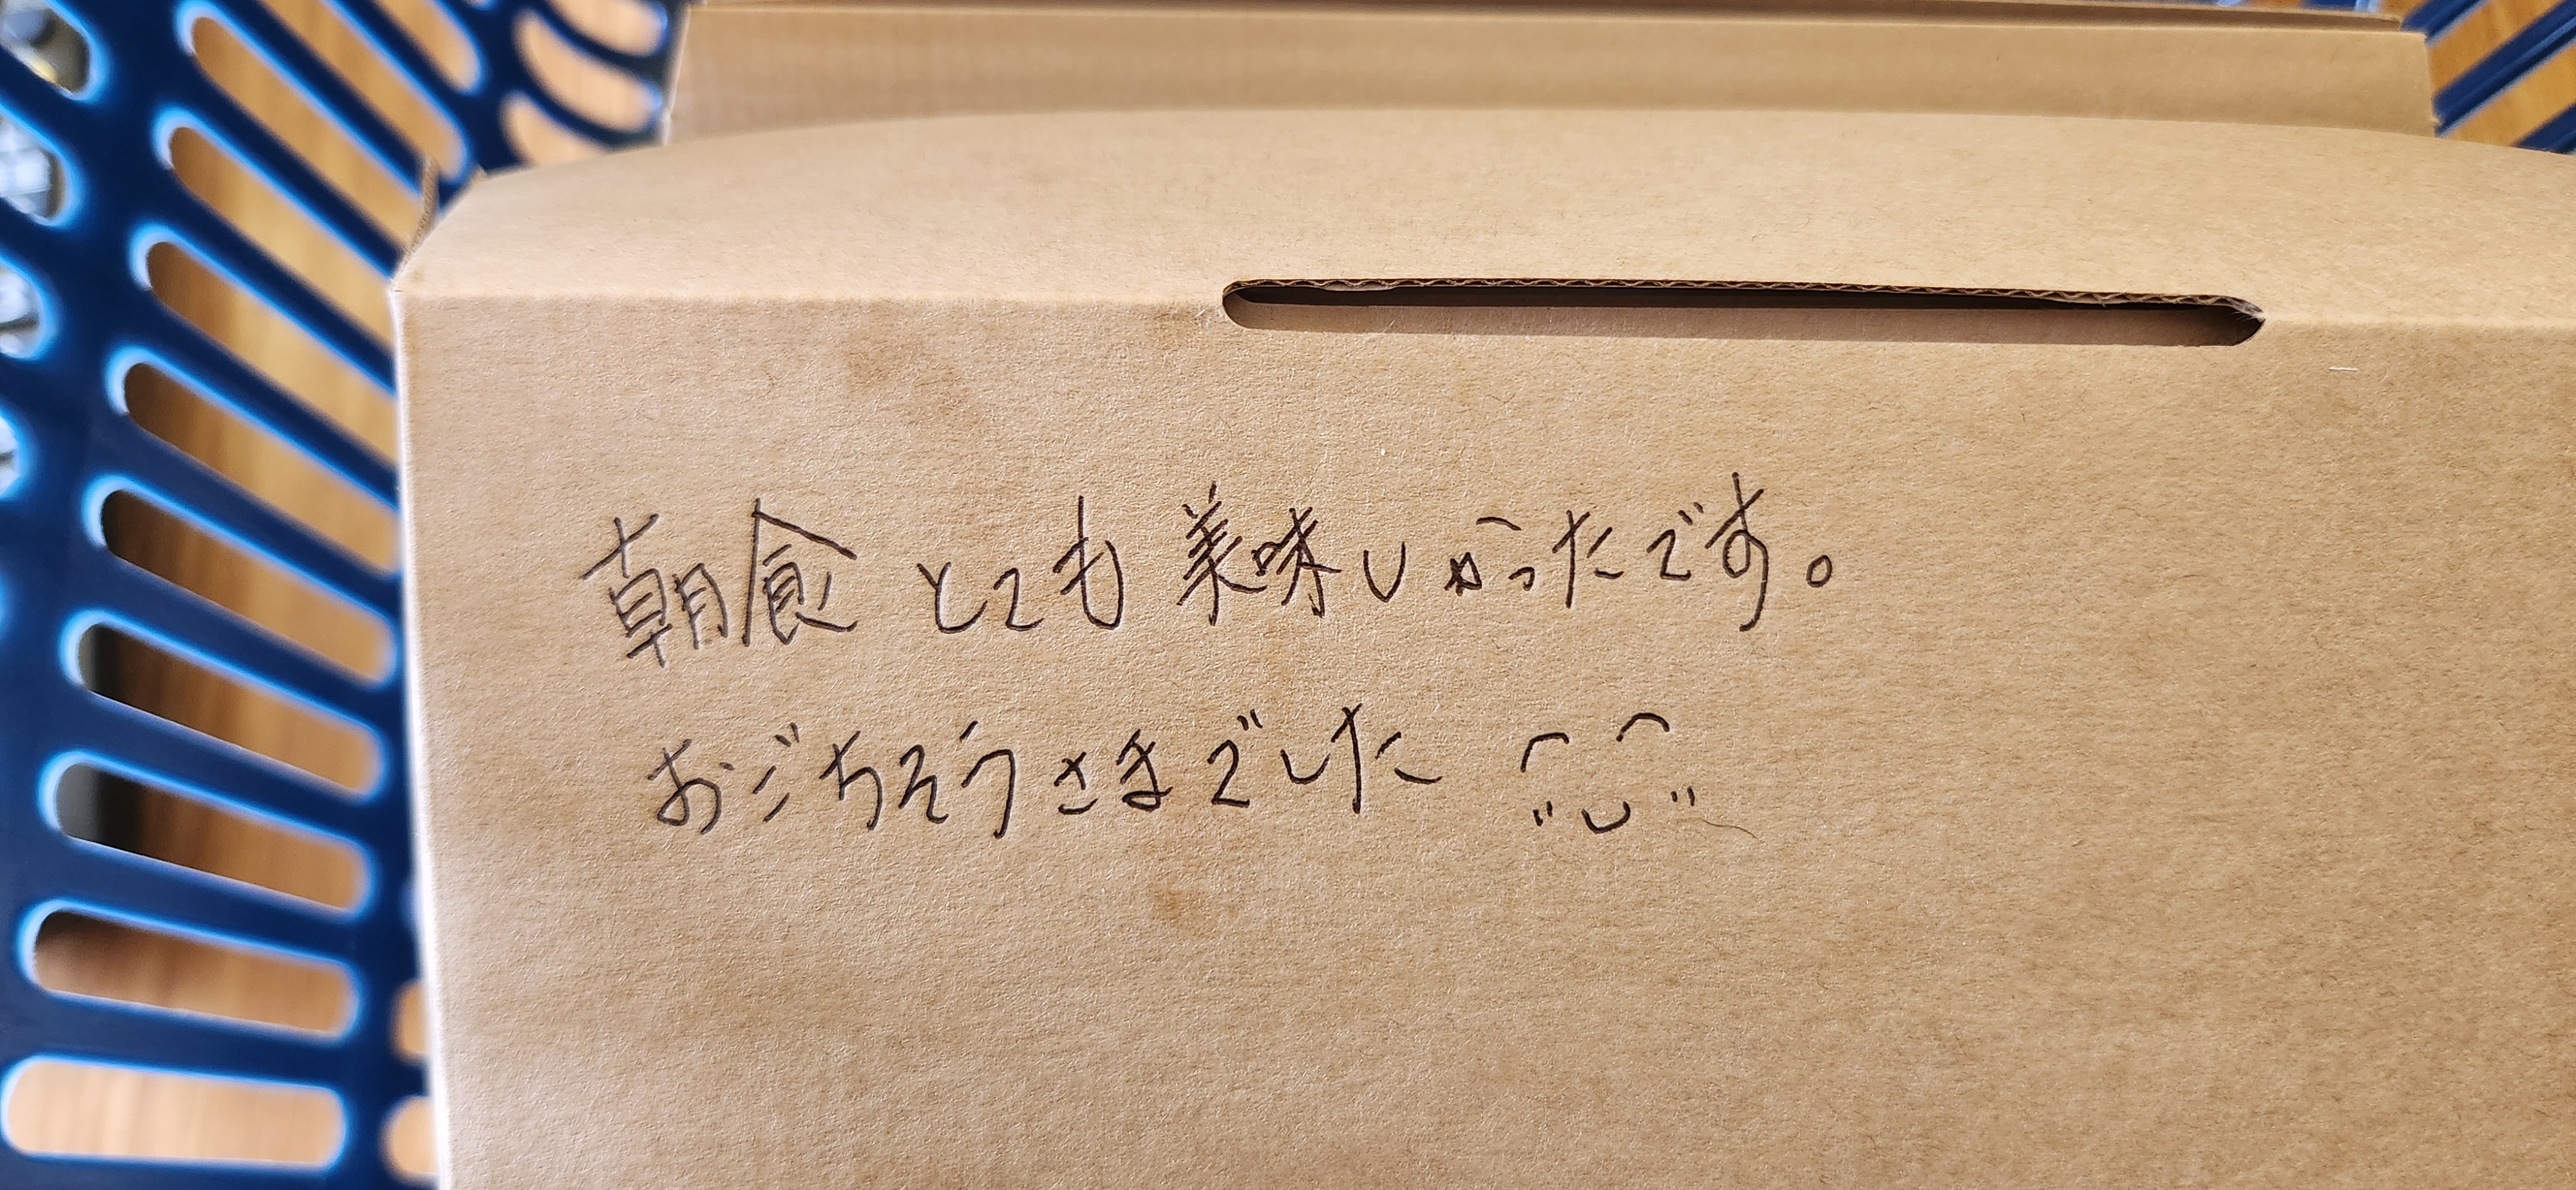 朝食 とても 美味しかったです。
おごちそうさまでした